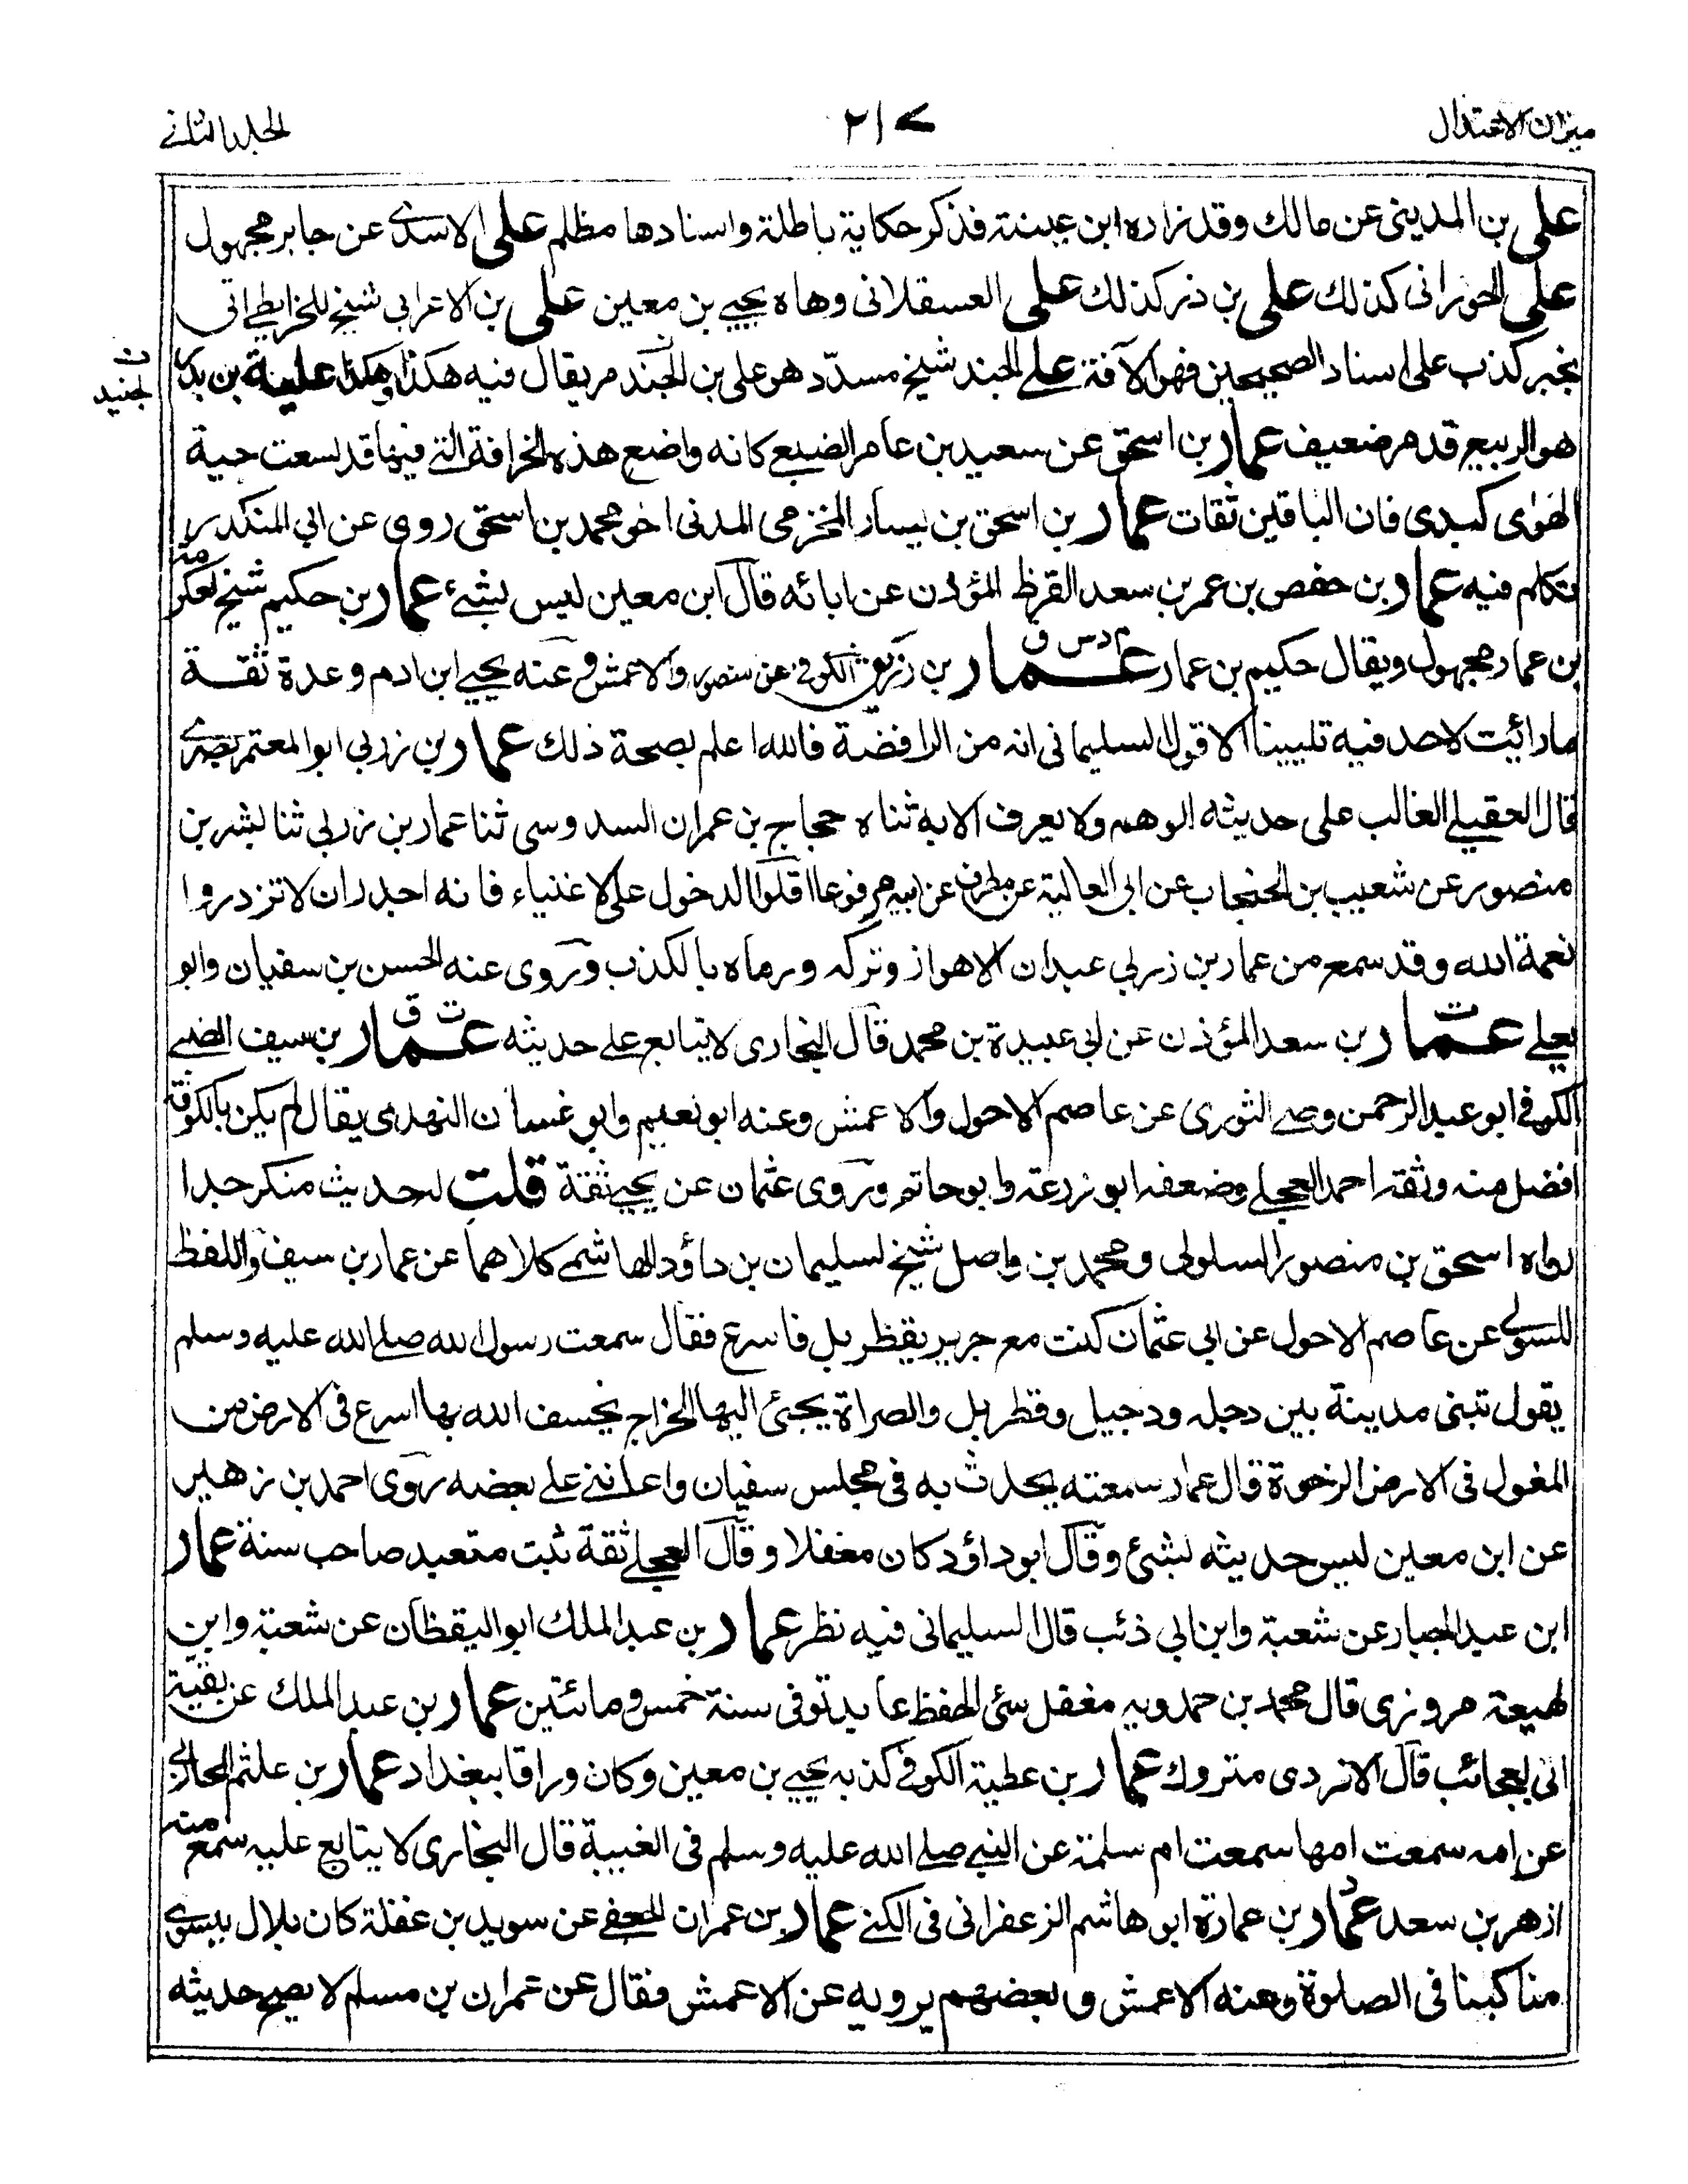 ميزان الاعتدال
٢١٧
الجلد الثانے
علی بن المدينی عن مالك وقد زاده ابن عيينة فذكر حكاية باطلة واسنادها مظلم علی الاسدے عن جابر مجهول
علی الحورانی كذلك علی بن ذر كذلك علی العسقلانی وهاه يحيے بن معين علی بن الاعرابی شيخ للخرايطے اتی
بخبر كذب علی اسناد الصحيحين فهو الآفة علے الجند شيخ مسدّد هو علی بن الجند مر يقال فيه هكذا وهكذا علية بن بدر
ن
لجنيد
هو الربيع قد مر ضعيف عمار بن اسحق عن سعيد بن عامر الضبعے كانه واضع هذه الخرافة التے فيها قد لسعت حية
الهوی كبدی فان الباقين ثقات عمار بن اسحق بن يسار المخرمی المدنی اخو محمد بن اسحق روی عن ابی المنكدر
تكلم فيه عمار بن حفص بن عمر بن سعد القرظ المؤذن عن ابائه قال ابن معين ليس بشیء عمار بن حكيم شيخ لعكرمة
بن عمار مجهول ويقال حكيم بن عمار عمار م د س ق بن رزيق الكوفے عن منصور والاعمش وعنه يحيے ابن ادم وعدة ثقة
ما رائيت لاحد فيه تليينا الا قول السليمانی انه من الرافضة فالله اعلم بصحة ذلك عمار بن زربی ابو المعتمر بصرے
قال العقيلے الغالب علی حديثه الوهم ولا يعرف الا به ثناه حجاج بن عمران السدوسی ثنا عمار بن زربی ثنا بشر بن
منصور عن شعيب بن الحبحاب عن ابی العالية عن مطرف عن ابيه مرفوعا اقلوا الدخول علی الاغنياء فانه احدر ان لا تزدروا
نعمة الله وقد سمع من عمار بن زربی عبدان الاهواز وتركه ورماه بالكذب وروی عنه الحسن بن سفيان وابو
يعلے عمار ت بن سعد المؤذن عن ابی عبيدة بن محمد قال البخاری لا يتابع علے حديثه عمار ت ق بن سيف الضبے
الكوفے ابو عبد الرحمن وصے الثوری عن عاصم الاحول والاعمش وعنه ابو نعيم وابو غسان النهدی يقال لم يكن بالكوفة
افضل منه وثقه احمد العجلے وضعفه ابو زرعة وابو حاتم وروی عثمان عن يحيے ثقة قلت له حديث منكر جدا
رواه اسحق بن منصور السلولی ومحمد بن واصل شيخ لسليمان بن داؤد الهاشمے كلاهما عن عمار بن سيف واللفظ
للسلولے عن عاصم الاحول عن ابی عثمان كنت مع جرير بقطربل فاسرع فقال سمعت رسول الله صلے الله عليه وسلم
يقول تبنی مدينة بين دجله ودجيل وقطربل والصراة يجئ اليها الخراج يخسف الله بها اسرع فی الارض من
المغول فی الارض الرخوة قال عمار سمعته يحدث به فی مجلس سفيان واعاننے علے بعضه روی احمد بن زهير
عن ابن معين ليس حديثه بشئ وقال ابو داؤد كان مغفلا وقال العجلے ثقة ثبت متعبد صاحب سنة عمار
ابن عبد الجبار عن شعبة وابن ابی ذئب قال السليمانی فيه نظر عمار بن عبد الملك ابو اليقظان عن شعبة وابن
لهيعة مروزی قال محمد بن حمدويه مغفل سئ الحفظ عابد توفی سنة خمس ومائتين عمار بن عبد الملك عن بقية
اتی بعجائب قال الازدی متروك عمار بن عطية الكوفے كذبه يحيے بن معين وكان وراقا ببغداد عمار بن علثم المحاربے
عن امه سمعت امها سمعت ام سلمة عن النبے صلے الله عليه وسلم فی الغيبة قال البخاری لا يتابع عليه سمع منه
ازهر بن سعد عمار د بن عمارة ابو هاشم الزعفرانی فی الكنے عمار بن عمران الجعفے عن سويد بن غفلة كان بلال يسوے
مناكبنا فی الصلوة وعنه الاعمش وبعضهم يرويه عن الاعمش فقال عن عمران بن مسلم لا يصح حديثه